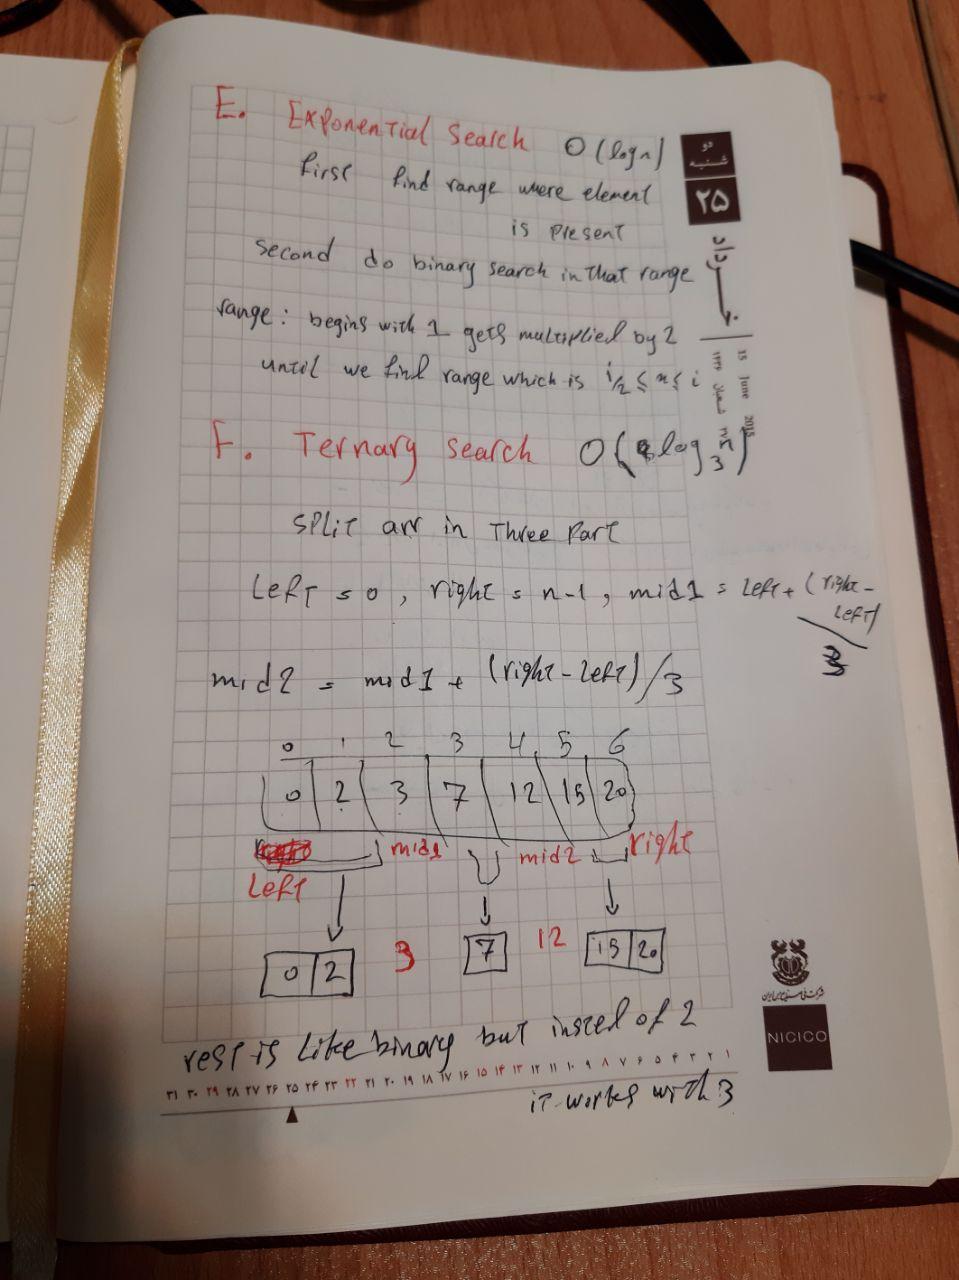 E. Exponential Search O(logn)
first find range where element
is present
second do binary search in that range
range: begins with 1 gets multiplied by 2
until we find range which is i/2 ≤ x ≤ i
F. Ternary search O(log₃n)
split arr in three part
left = 0, right = n-1, mid1 = left + (right - left)/3
mid2 = mid1 + (right - left)/3
0 1 2 3 4 5 6
0 2 3 7 12 15 20
left mid1 mid2 right
0 2 3 7 12 15 20
rest is like binary but insted of 2
it works with 3
دو
شنبه
۲۵
خرداد
15 June 2015
۲۷ شعبان ۱۴۳۶
شرکت ملی صنایع مس ایران
NICICO
۳۱ ۳۰ ۲۹ ۲۸ ۲۷ ۲۶ ۲۵ ۲۴ ۲۳ ۲۲ ۲۱ ۲۰ ۱۹ ۱۸ ۱۷ ۱۶ ۱۵ ۱۴ ۱۳ ۱۲ ۱۱ ۱۰ ۹ ۸ ۷ ۶ ۵ ۴ ۳ ۲ ۱